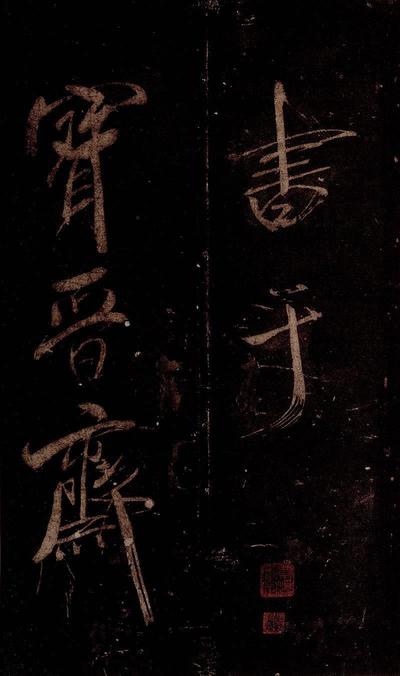 書于
寶晋齋